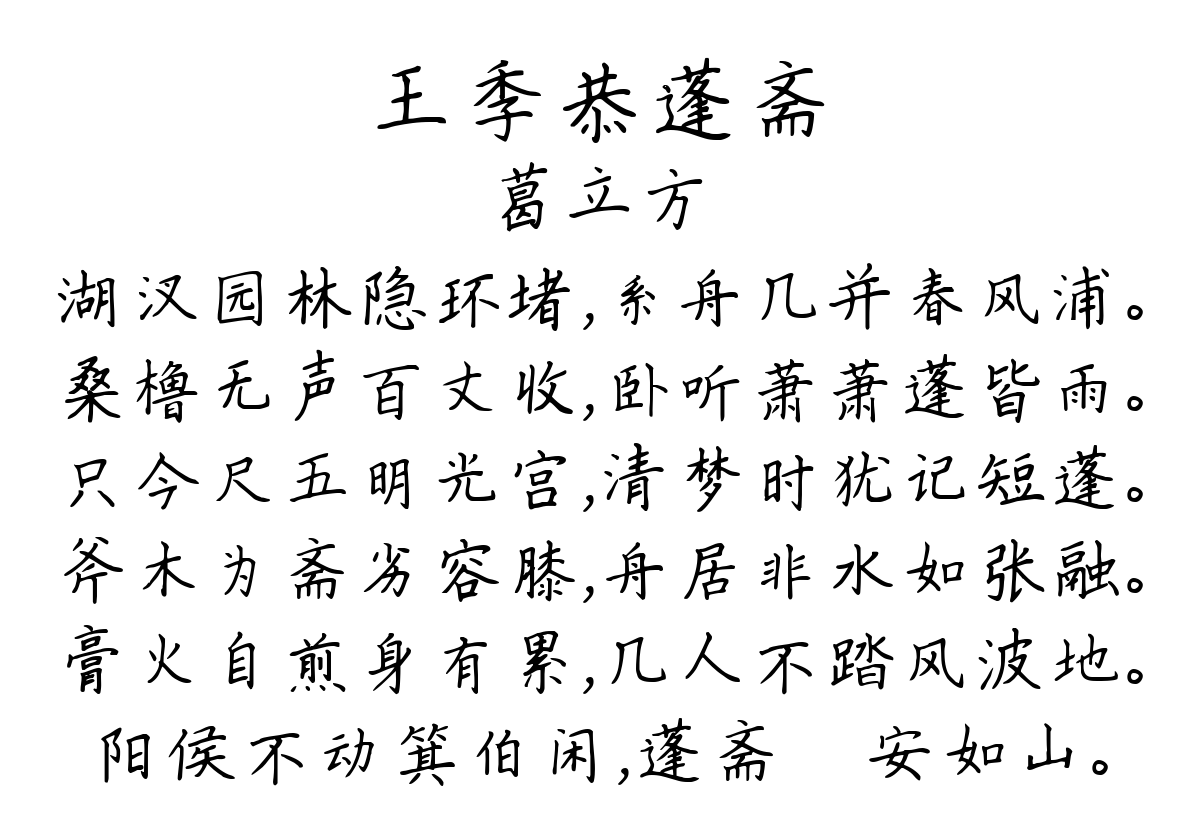 王季恭蓬斋
葛立方
湖汊园林隐环堵,系舟几并春风浦。
桑橹无声百丈收,卧听萧萧蓬皆雨。
只今尺五明光宫,清梦时犹记短蓬。
斧木为斋劣容膝,舟居非水如张融。
膏火自煎身有累,几人不踏风波地。
阳侯不动箕伯闲,蓬斋 安如山。